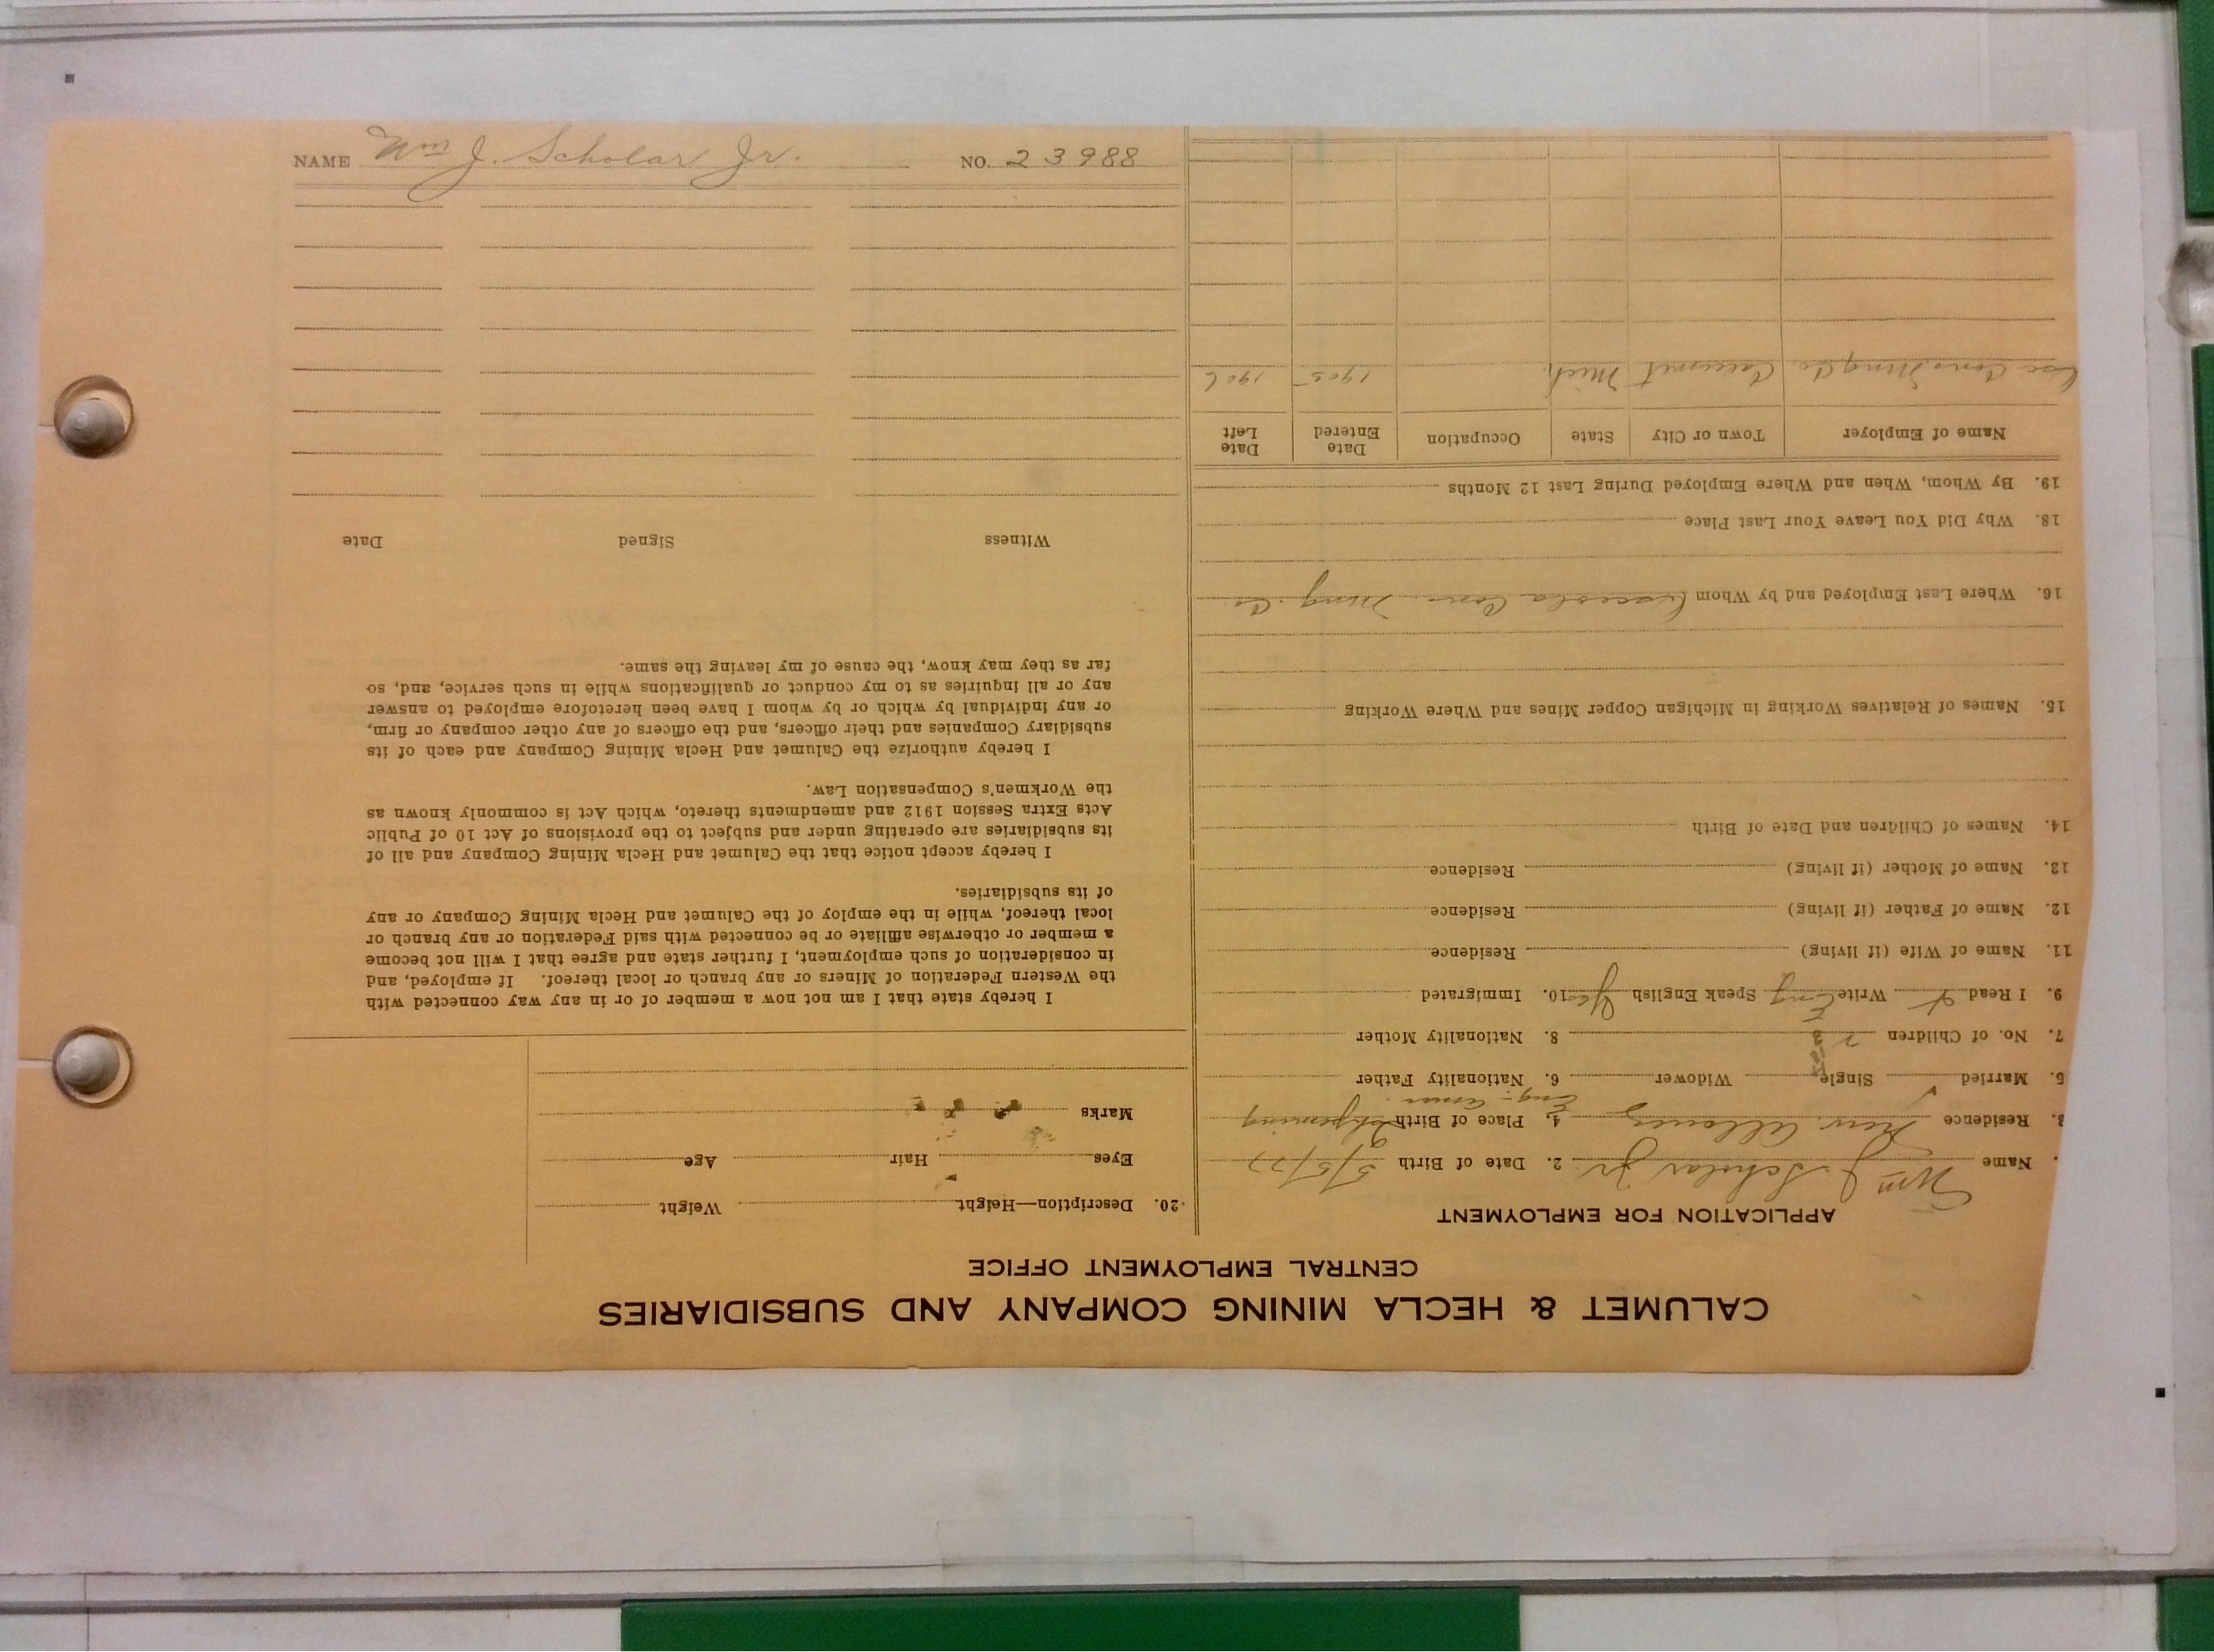 CALUMET & HECLA MINING COMPANY AND SUBSIDIARIES
CENTRAL EMPLOYMENT OFFICE
APPLICATION FOR EMPLOYMENT
Name Wm J. Scholar Jr 2. Date of Birth 5/5/77
Residence New Allouez 4. Place of Birth Ishpeming
Eng - Amer
5. Married ✓ Single Widower 6. Nationality Father
7. No. of Children 2 8. Nationality Mother
9. I Read Write Eng Speak English Yes 10. Immigrated
11. Name of Wife (if living) Residence
12. Name of Father (if living) Residence
13. Name of Mother (if living) Residence
14. Names of Children and Date of Birth
15. Names of Relatives Working in Michigan Copper Mines and Where Working
16. Where Last Employed and by Whom Osceola Cons. Mng. Co.
18. Why Did You Leave Your Last Place
19. By Whom, When and Where Employed During Last 12 Months
Name of Employer Town or City State Occupation Date Entered Date Left
Cons. Mng Co. Calumet Mich. 1905 1906
20. Description—Height Weight
Eyes Hair Age
Marks
I hereby state that I am not now a member of or in any way connected with
the Western Federation of Miners or any branch or local thereof. If employed, and
in consideration of such employment, I further state and agree that I will not become
a member or otherwise affiliate or be connected with said Federation or any branch or
local thereof, while in the employ of the Calumet and Hecla Mining Company or any
of its subsidiaries.
I hereby accept notice that the Calumet and Hecla Mining Company and all of
its subsidiaries are operating under and subject to the provisions of Act 10 of Public
Acts Extra Session 1912 and amendments thereto, which Act is commonly known as
the Workmen's Compensation Law.
I hereby authorize the Calumet and Hecla Mining Company and each of its
subsidiary Companies and their officers, and the officers of any other company or firm,
or any individual by which or by whom I have been heretofore employed to answer
any or all inquiries as to my conduct or qualifications while in such service, and, so
far as they may know, the cause of my leaving the same.
Witness Signed Date
NAME Wm J. Scholar Jr. NO. 23988